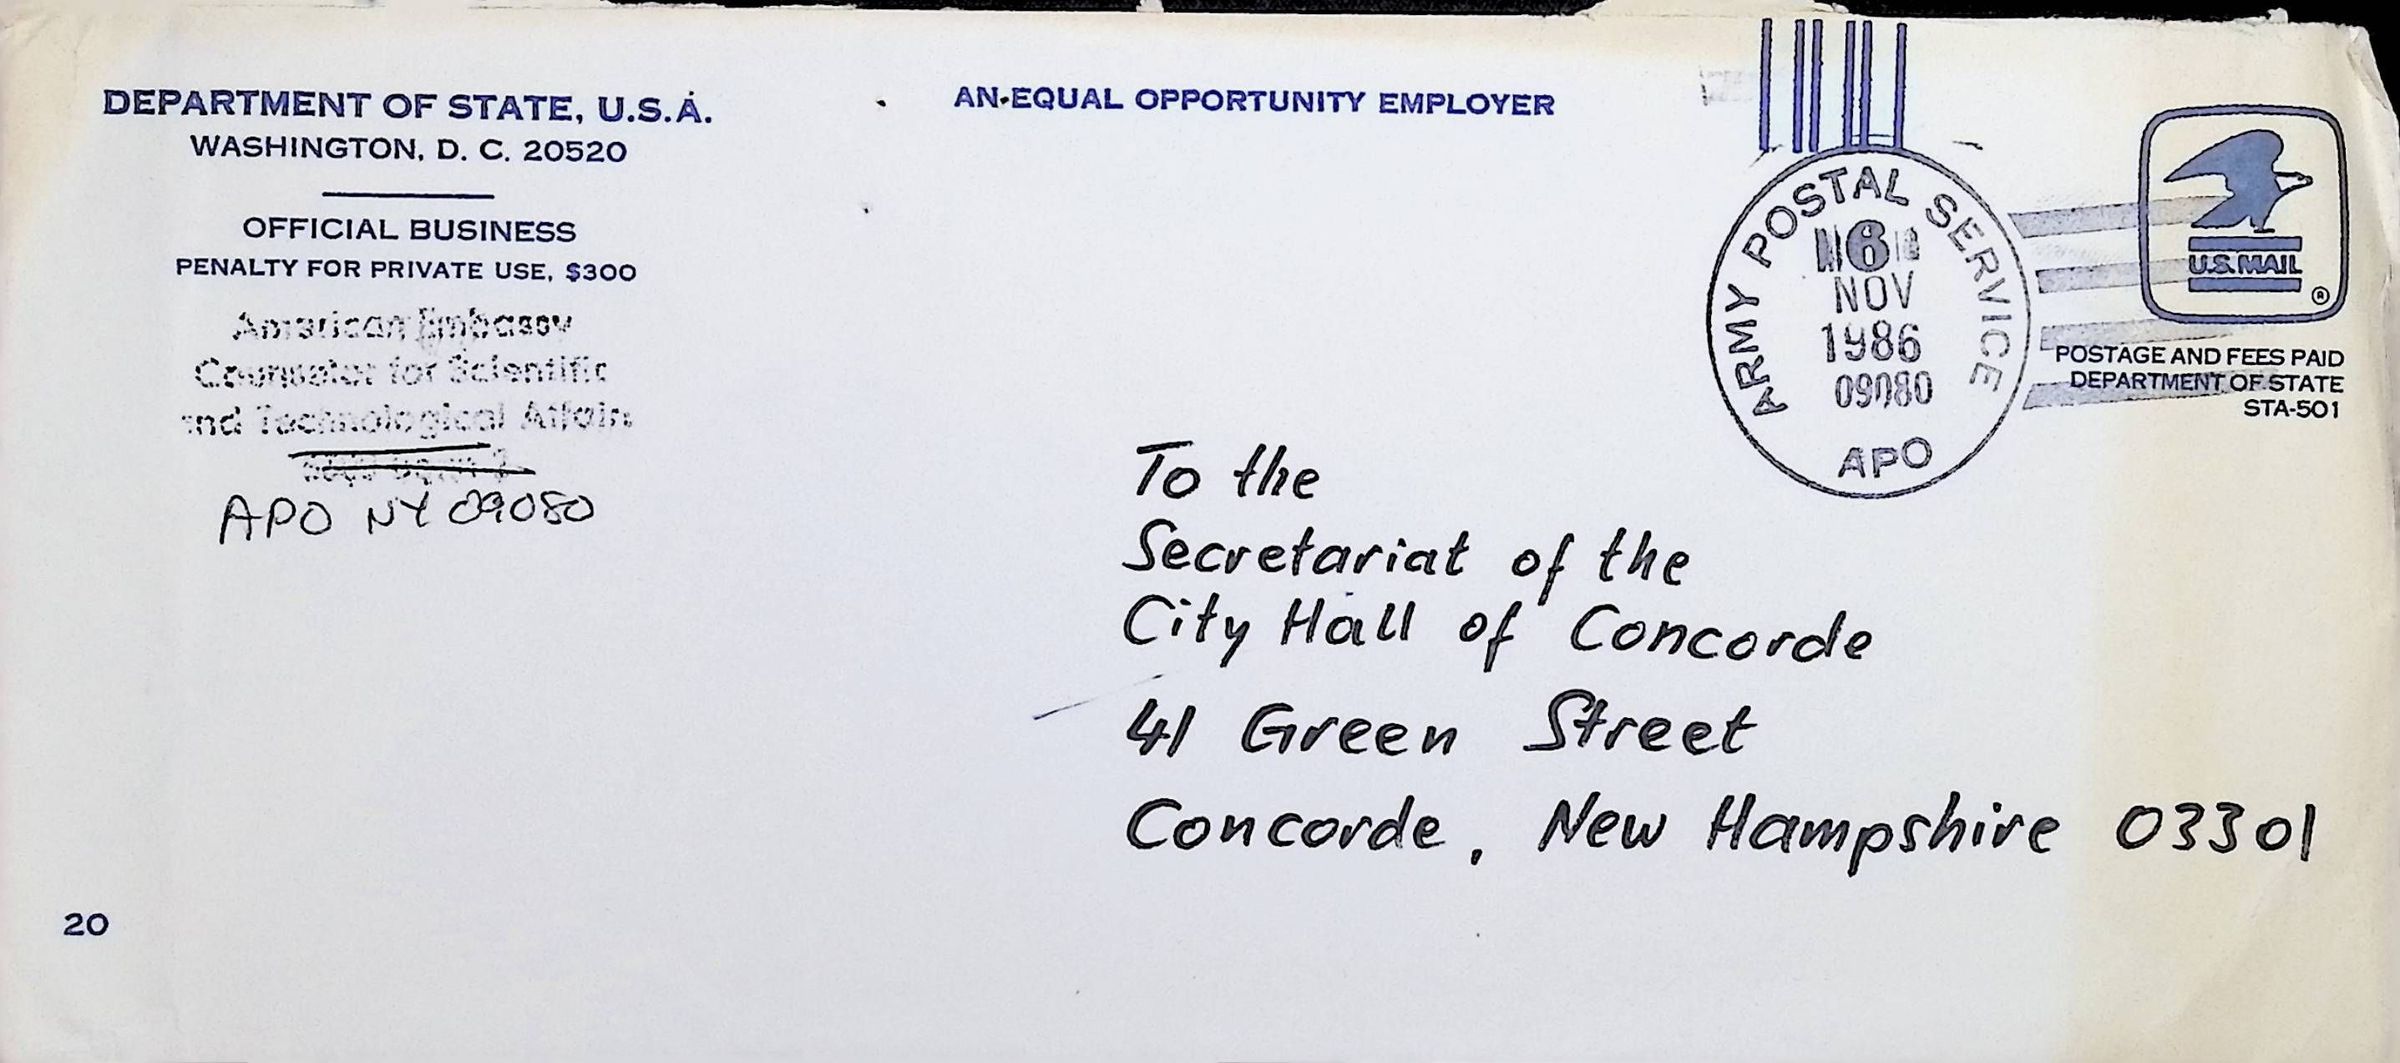 DEPARTMENT OF STATE, U.S.A.
WASHINGTON, D. C. 20520
OFFICIAL BUSINESS
PENALTY FOR PRIVATE USE, $300
American Embassy
Counselor for Scientific
and Technological Affairs
APO NY 09080
AN EQUAL OPPORTUNITY EMPLOYER
ARMY POSTAL SERVICE
6
NOV
1986
09080
APO
U.S. MAIL
®
POSTAGE AND FEES PAID
DEPARTMENT OF STATE
STA-501
To the
Secretariat of the
City Hall of Concorde
41 Green Street
Concorde, New Hampshire 03301
20